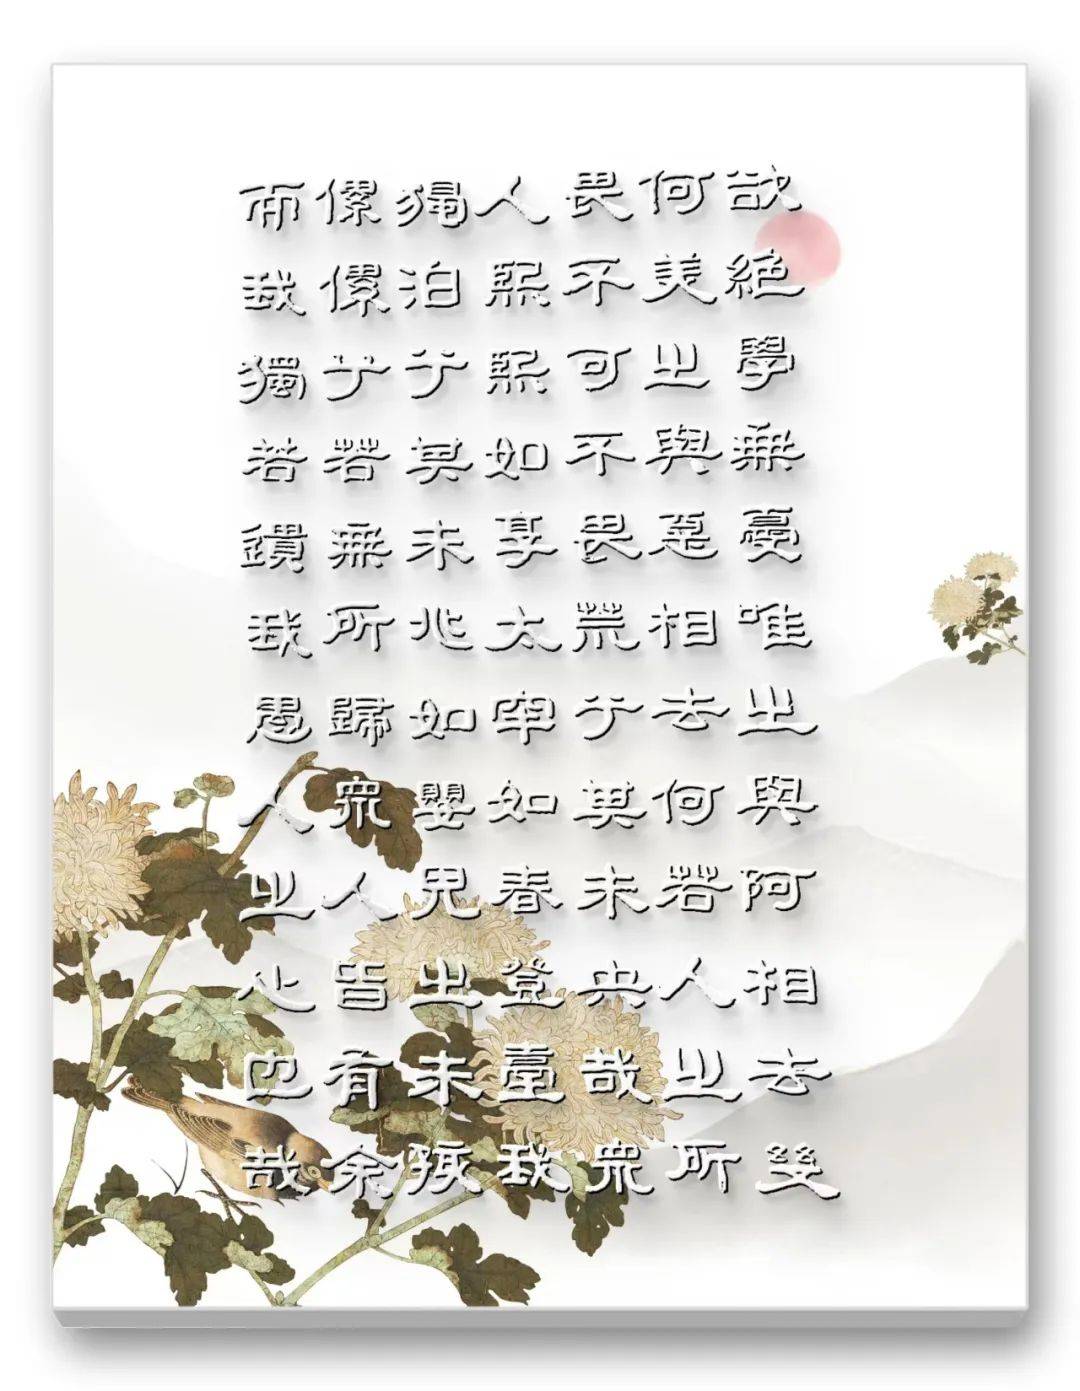 欲絕學無憂唯之與阿相去幾
何美之與惡相去何若人之所
畏不可不畏荒兮其未央哉眾
人熙熙如享太牢如春登臺我
獨泊兮其未兆如嬰兒之未孩
儽儽兮若無所歸眾人皆有余
而我獨若鐀我愚人之心也哉